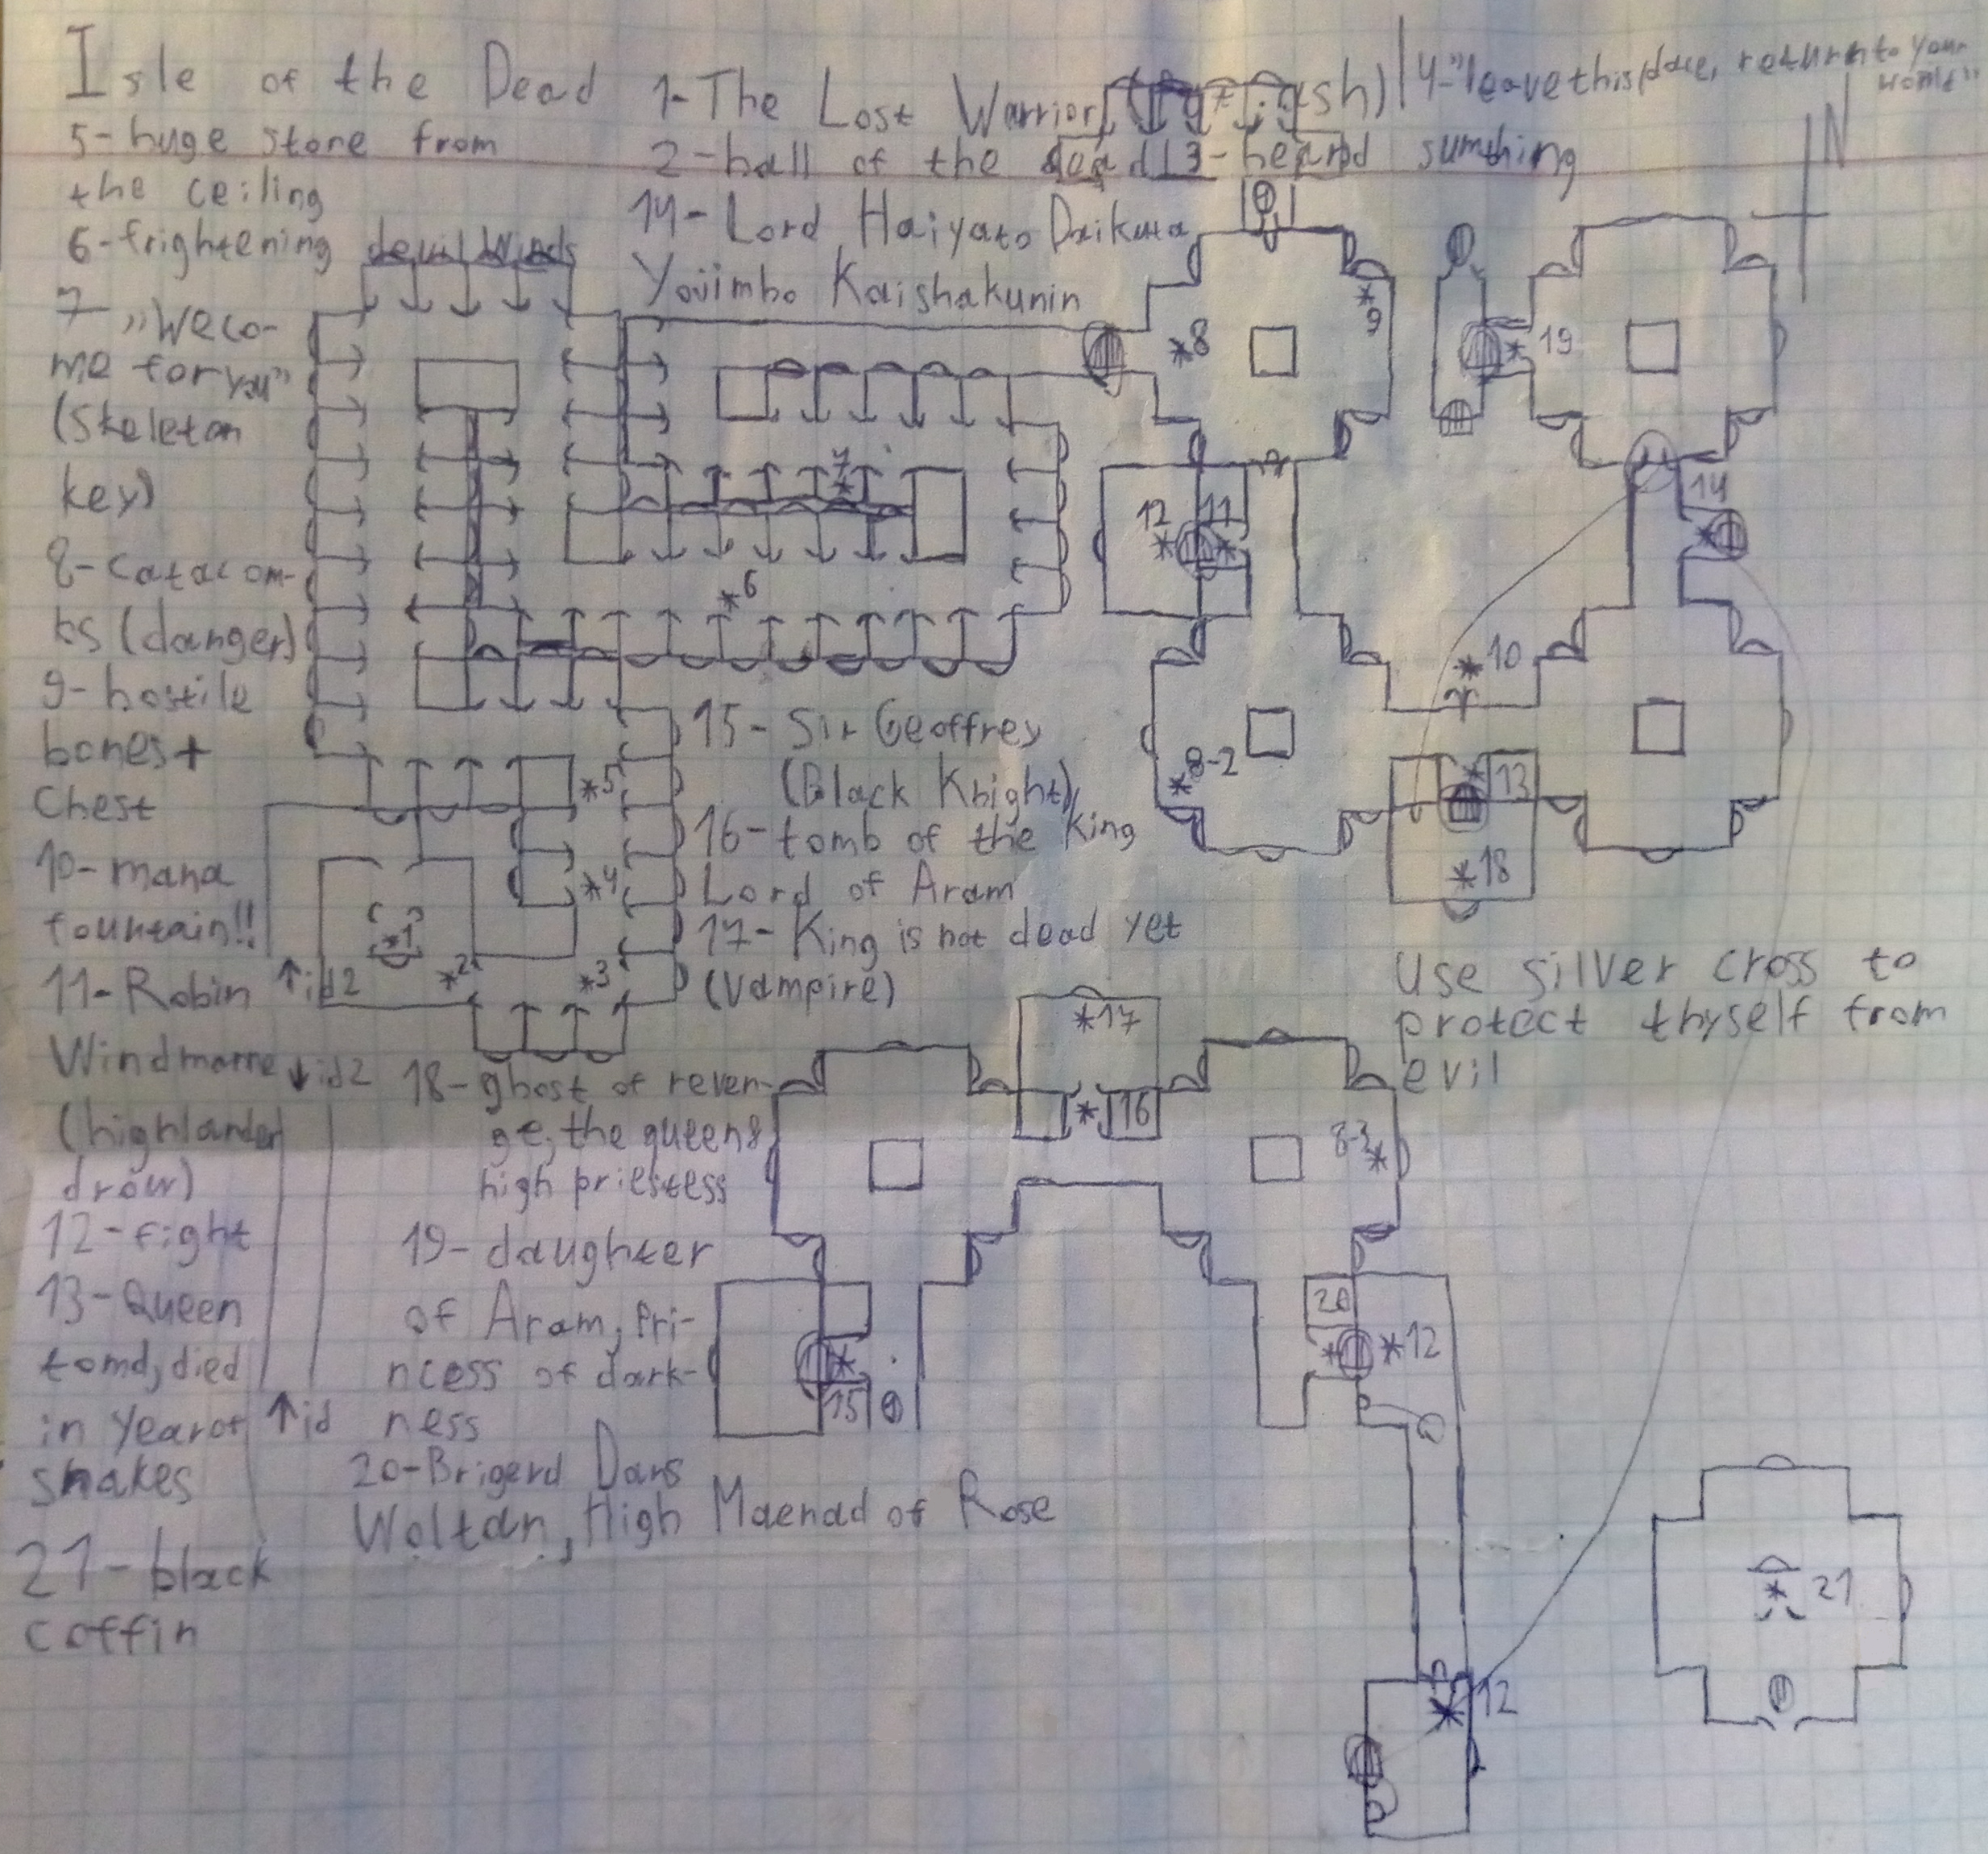 Isle of the Dead
1-The Lost Warrior
4-"leave this place, return to your
world"
2-hall of the dead 3-heard sumthing
5-huge stone from
the ceiling
6-frightening devil winds
7-„We co-
me for you"
(skeleton
key)
8-catacom-
bs (danger)
9-hostile
bones+
Chest
10-mana
fountain!!
11-Robin
Windmarne
(highlander
drow)
12-fight
13-Queen
tomd, died
in year of
snakes
21-black
coffin
↑id2
↓id2
↑id
14-Lord Haiyato Daikuta
Yojimbo Kaishakunin
15-Sir Geoffrey
(Black Knight)
16-tomb of the King
Lord of Aram
17-King is not dead yet
(Vampire)
18-ghost of reven-
ge, the queens
high priestess
19-daughter
of Aram, Pri-
ncess of dark-
ness
20-Brigerd Dans
Woltan, High Maenad of Rose
Use silver cross to
protect thyself from
evil
N
*8
*9
*19
12
11
14
*7
*6
*10
*8-2
13
*18
*5
*4
*1
*2
*3
*17
*16
8-3*
15
20
*12
*12
*21